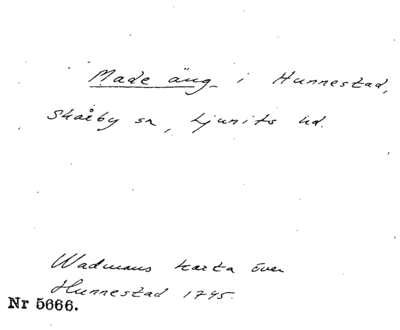 Made äng i Hunnestad,
Skårby sn, Ljunits hd.
Wadmans karta över
Hunnestad 1745.
Nr 5666.